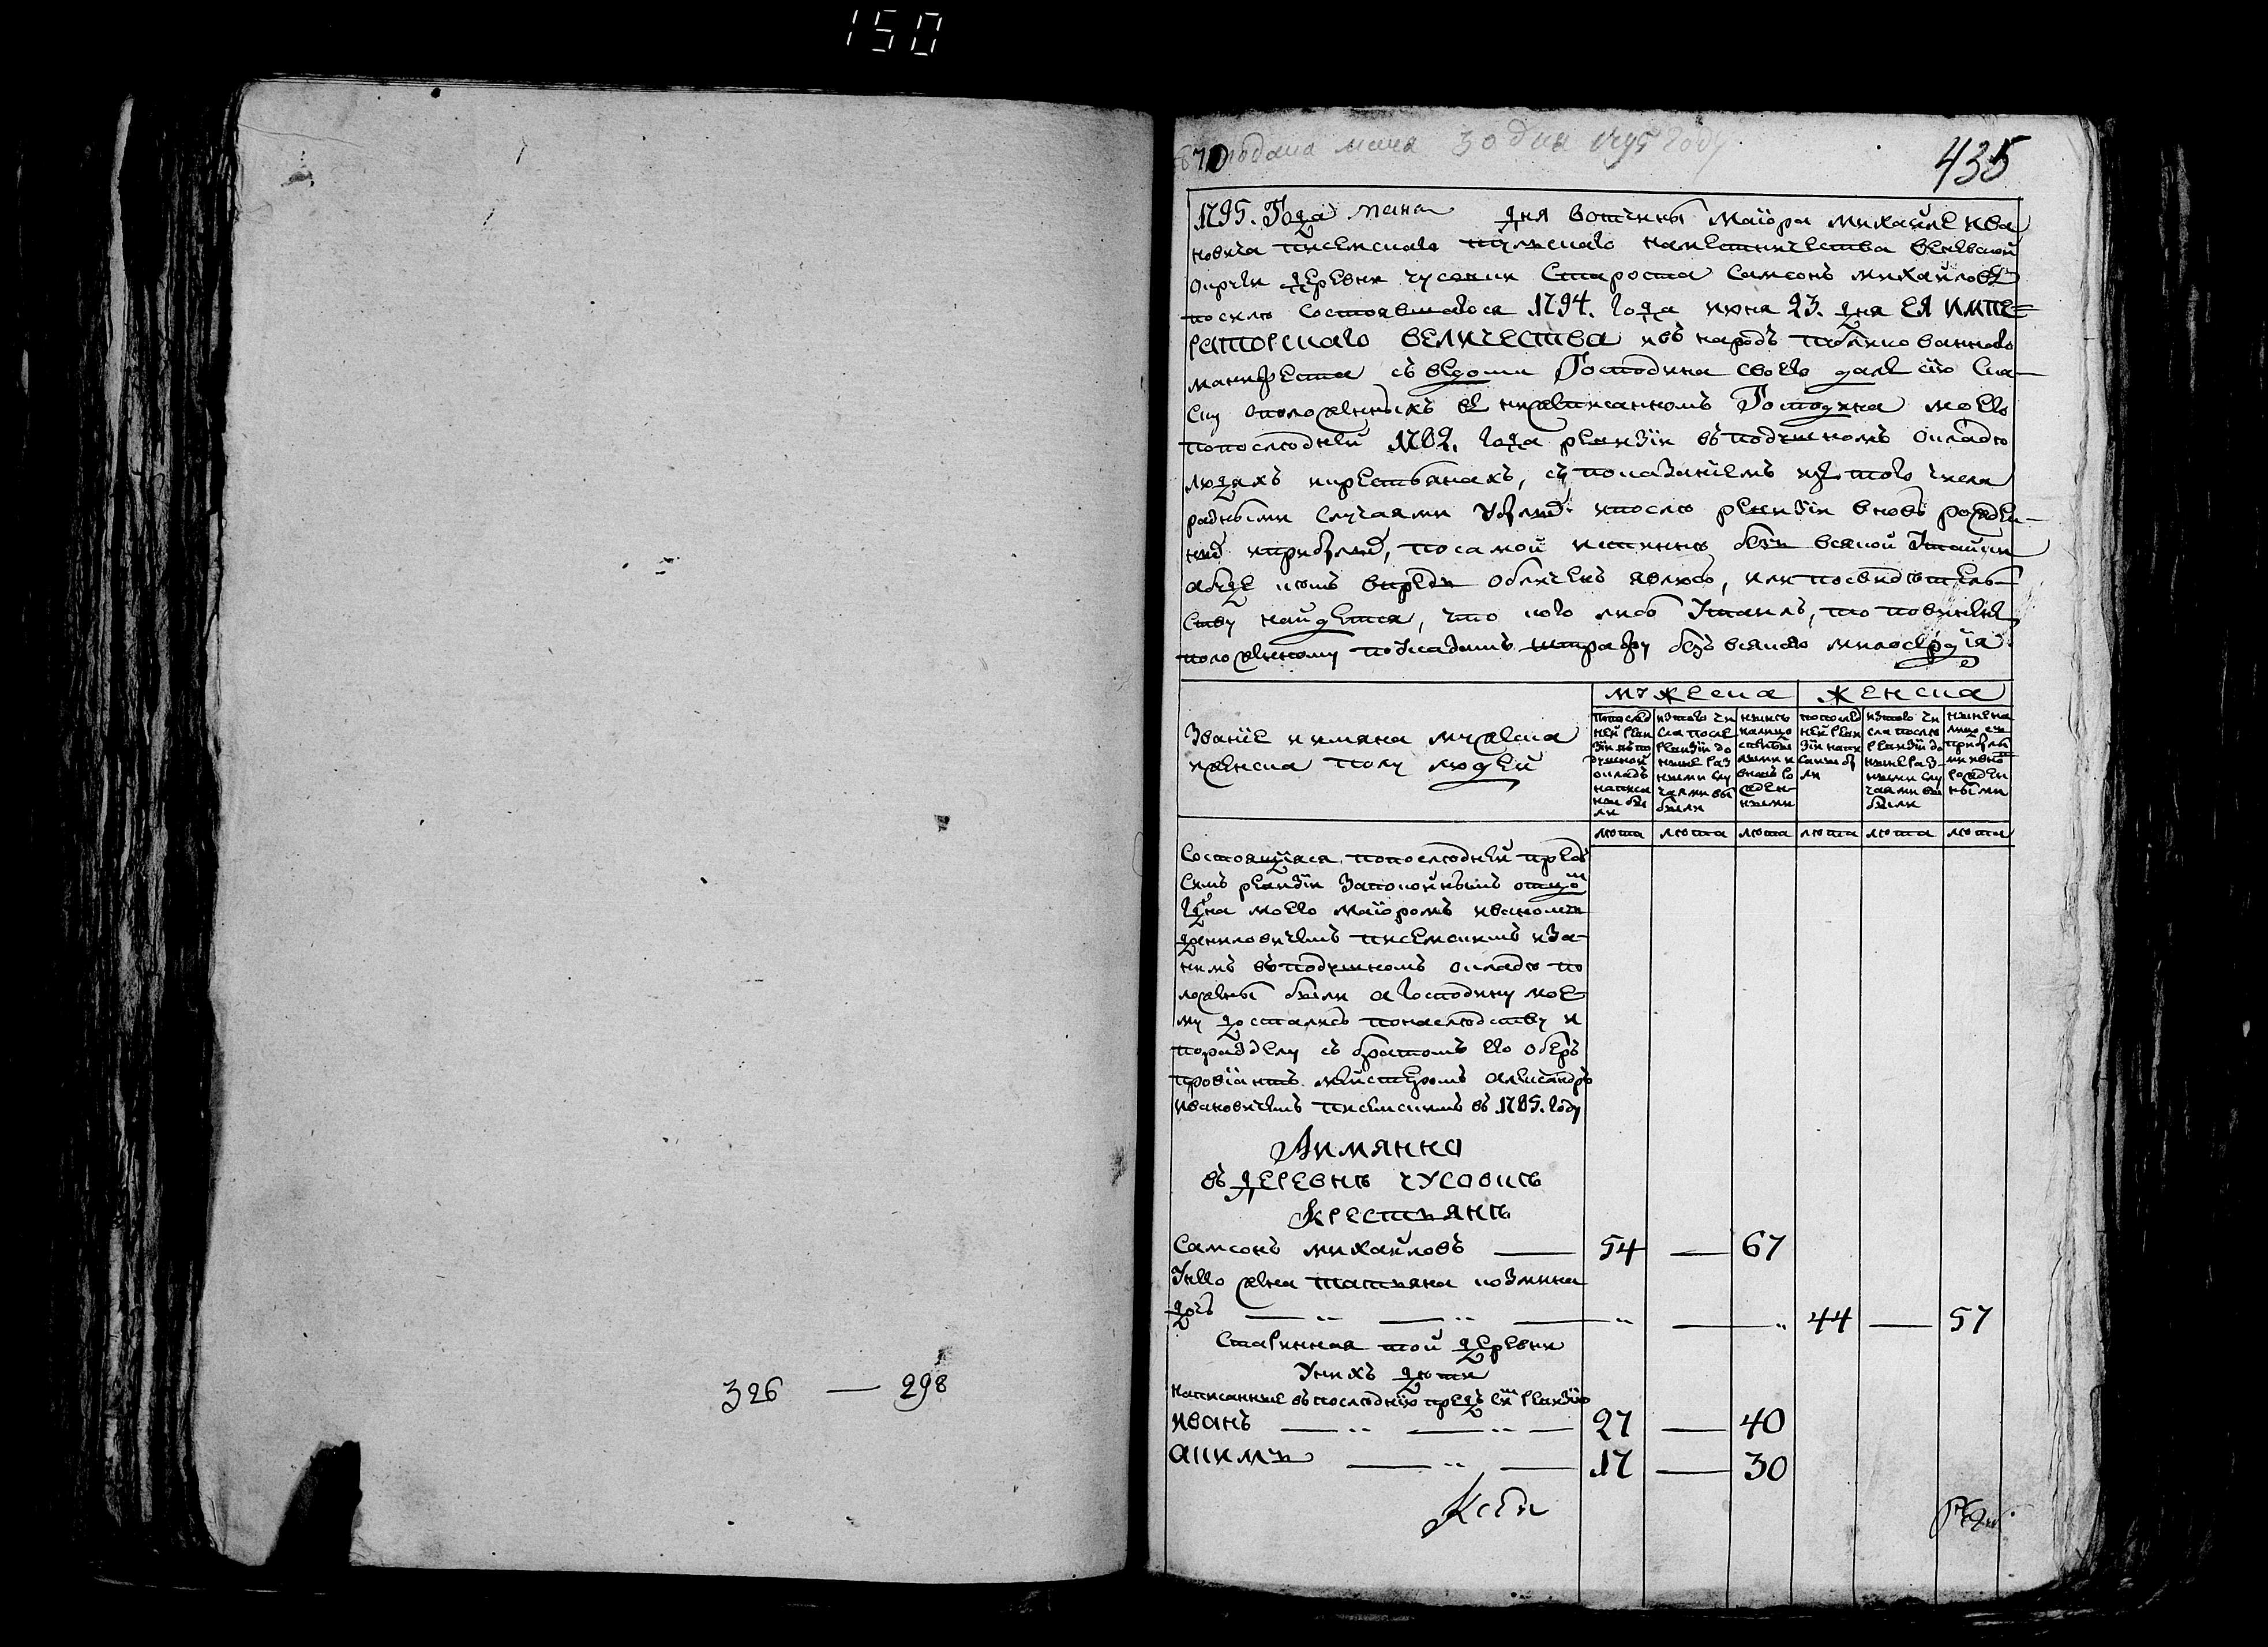 150
326 — 298
подана маия 30 дня 1795 году
435
1795. Года маия дня вотчины маиора михайле ива
новича писемскаго тульскаго наместничества веневской
округи деревни чусовки Староста Самсонъ михайловъ
посиле Состоявшагося 1794. года июня 23. дня ЕЯ ИМПЕ=
РАТОРСКАГО ВЕЛИЧЕСТВА ивъ народъ публикованнаго
манифеста съ ведома Господина своего далъ сию Ска-
ску оположенныхъ въ нижеписанномъ Господина моего
попоследней 1782. года ревизiи въподушномъ окладе
людяхъ икрестьянахъ, съ показаниемъ изъ того числа
разными Случаями после ревизiи вновь рожден-
посамой истинне безъ всякой утайки
абуде кемъ впредь обличенъ явлюсь, или посвидетель-
ству найдется, что кого либо утаилъ, то повиненъ
положенному подпадаетъ штрафу безъ всякаго милосердiя
мужеска женска
Званiе иимяна мужеска
иженска полу людей
попослед
ней реви
зiи въпо
душной
окладъ
написа
ны бы
ли
изтого чи
сла после
ревизiи до
ныне раз
ными слу
чаями вы
были
ныне
налицо
вновь ро
жден-
ными
попослед
ней реви
зiи напи
саны бы
ли
изтого чи
сла после
ревизiи до
ныне раз-
ными слу
чаями вы
были
ныне на
лицо
рожден
ными
лета лета лета лета лета лета
Состоящiяся попоследней предъ
симъ ревизiи запокойнымъ отцомъ
Гдна моего маiоромъ иваномъ
даниловичемъ писемскимъ иза-
нимъ въподушномъ окладе по
ложены были а господину мое-
му достались понаследству и
поразделу съ братомъ его оберъ
провiантъ мейстеромъ александръ
ивановичемъ писемскимъ въ 1785. году
Аимянно
въ деревне чусовке
Крестьяне
Самсонъ михайловъ — 54 — 67
Унего жена татьяна козмина
дочь — 44 — 57
Старинная той деревни
Унихъ дети
написанные въпоследнюю предъ симъ ревизiю
иванъ — 27 — 40
акимъ — 17 — 30
Ксей